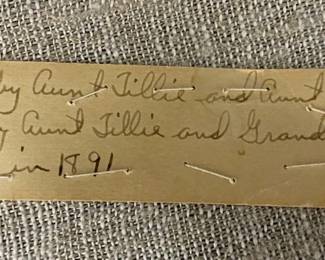 by Aunt Tillie and Aunt
by Aunt Tillie and Grand
in 1891